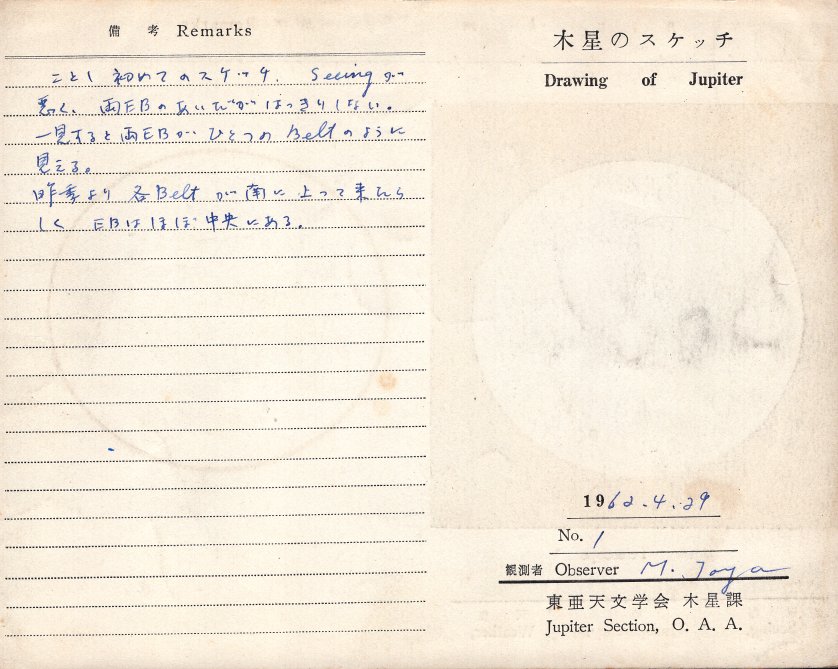 備考 Remarks
ことし初めてのスケッチ. Seeingが
悪く、両EBのあいだがはっきりしない。
一見すると両EBがひとつのBeltのように
見える。
昨季より各Beltが南に上って来たら
しく EBはほぼ中央にある。
木星のスケッチ
Drawing of Jupiter
1962.4.29
No. 1
観測者 Observer M. Toya
東亜天文学会 木星課
Jupiter Section, O. A. A.